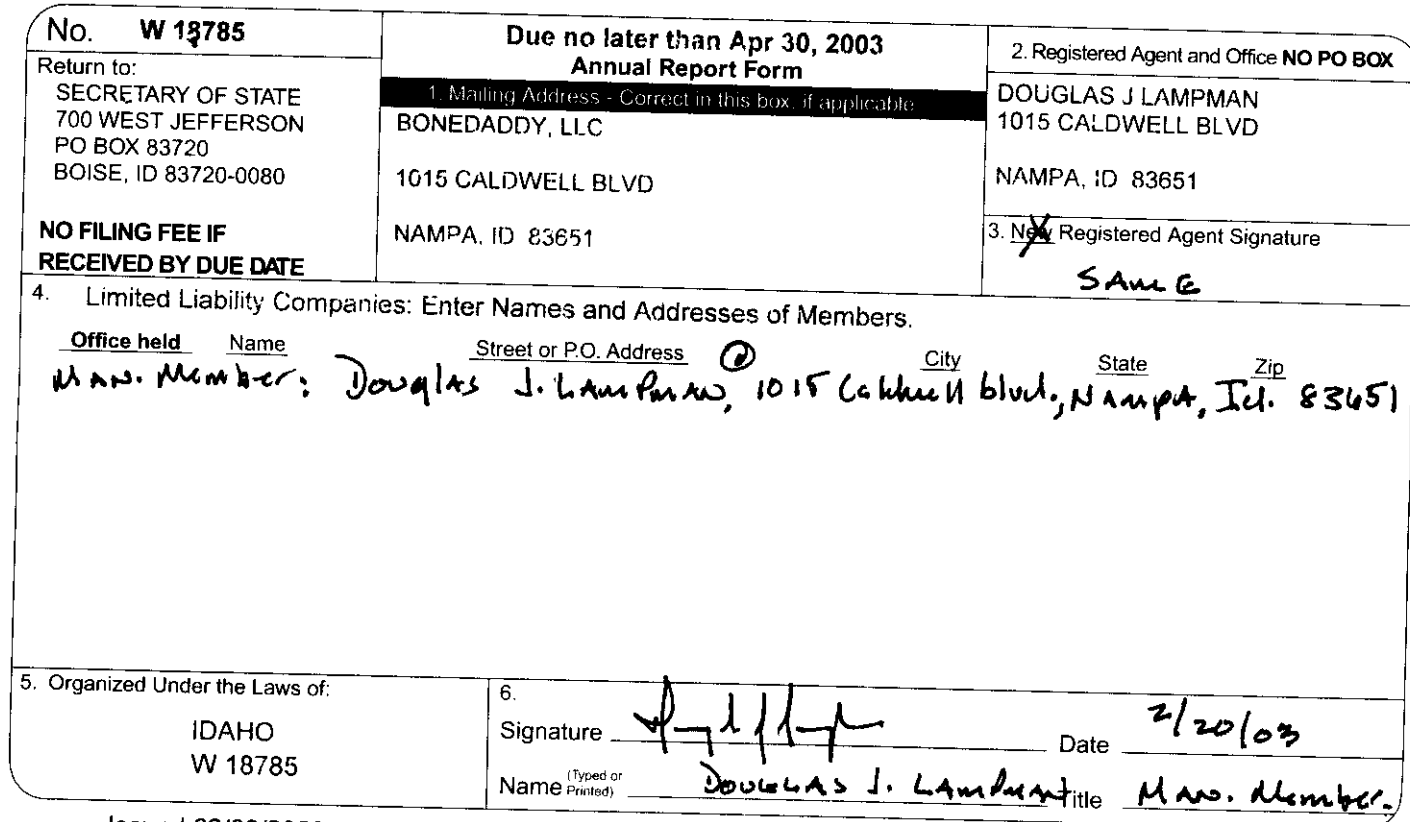 No. W 18785
Return to:
SECRETARY OF STATE
700 WEST JEFFERSON
PO BOX 83720
BOISE, ID 83720-0080
NO FILING FEE IF
RECEIVED BY DUE DATE
Due no later than Apr 30, 2003
Annual Report Form
1. Mailing Address - Correct in this box, if applicable
BONEDADDY, LLC
1015 CALDWELL BLVD
NAMPA, ID 83651
2. Registered Agent and Office NO PO BOX
DOUGLAS J LAMPMAN
1015 CALDWELL BLVD
NAMPA, ID 83651
3. New Registered Agent Signature
SAME
4. Limited Liability Companies: Enter Names and Addresses of Members.
Office held Name Street or P.O. Address @ City State Zip
MAN. Member: Douglas J. LAMPMAN, 1015 Caldwell blvd., NAMPA, Id. 83651
5. Organized Under the Laws of:
IDAHO
W 18785
6.
Signature Date 2/20/03
Name (Typed or Printed) DOUGLAS J. LAMPMAN Title MAN. Member.